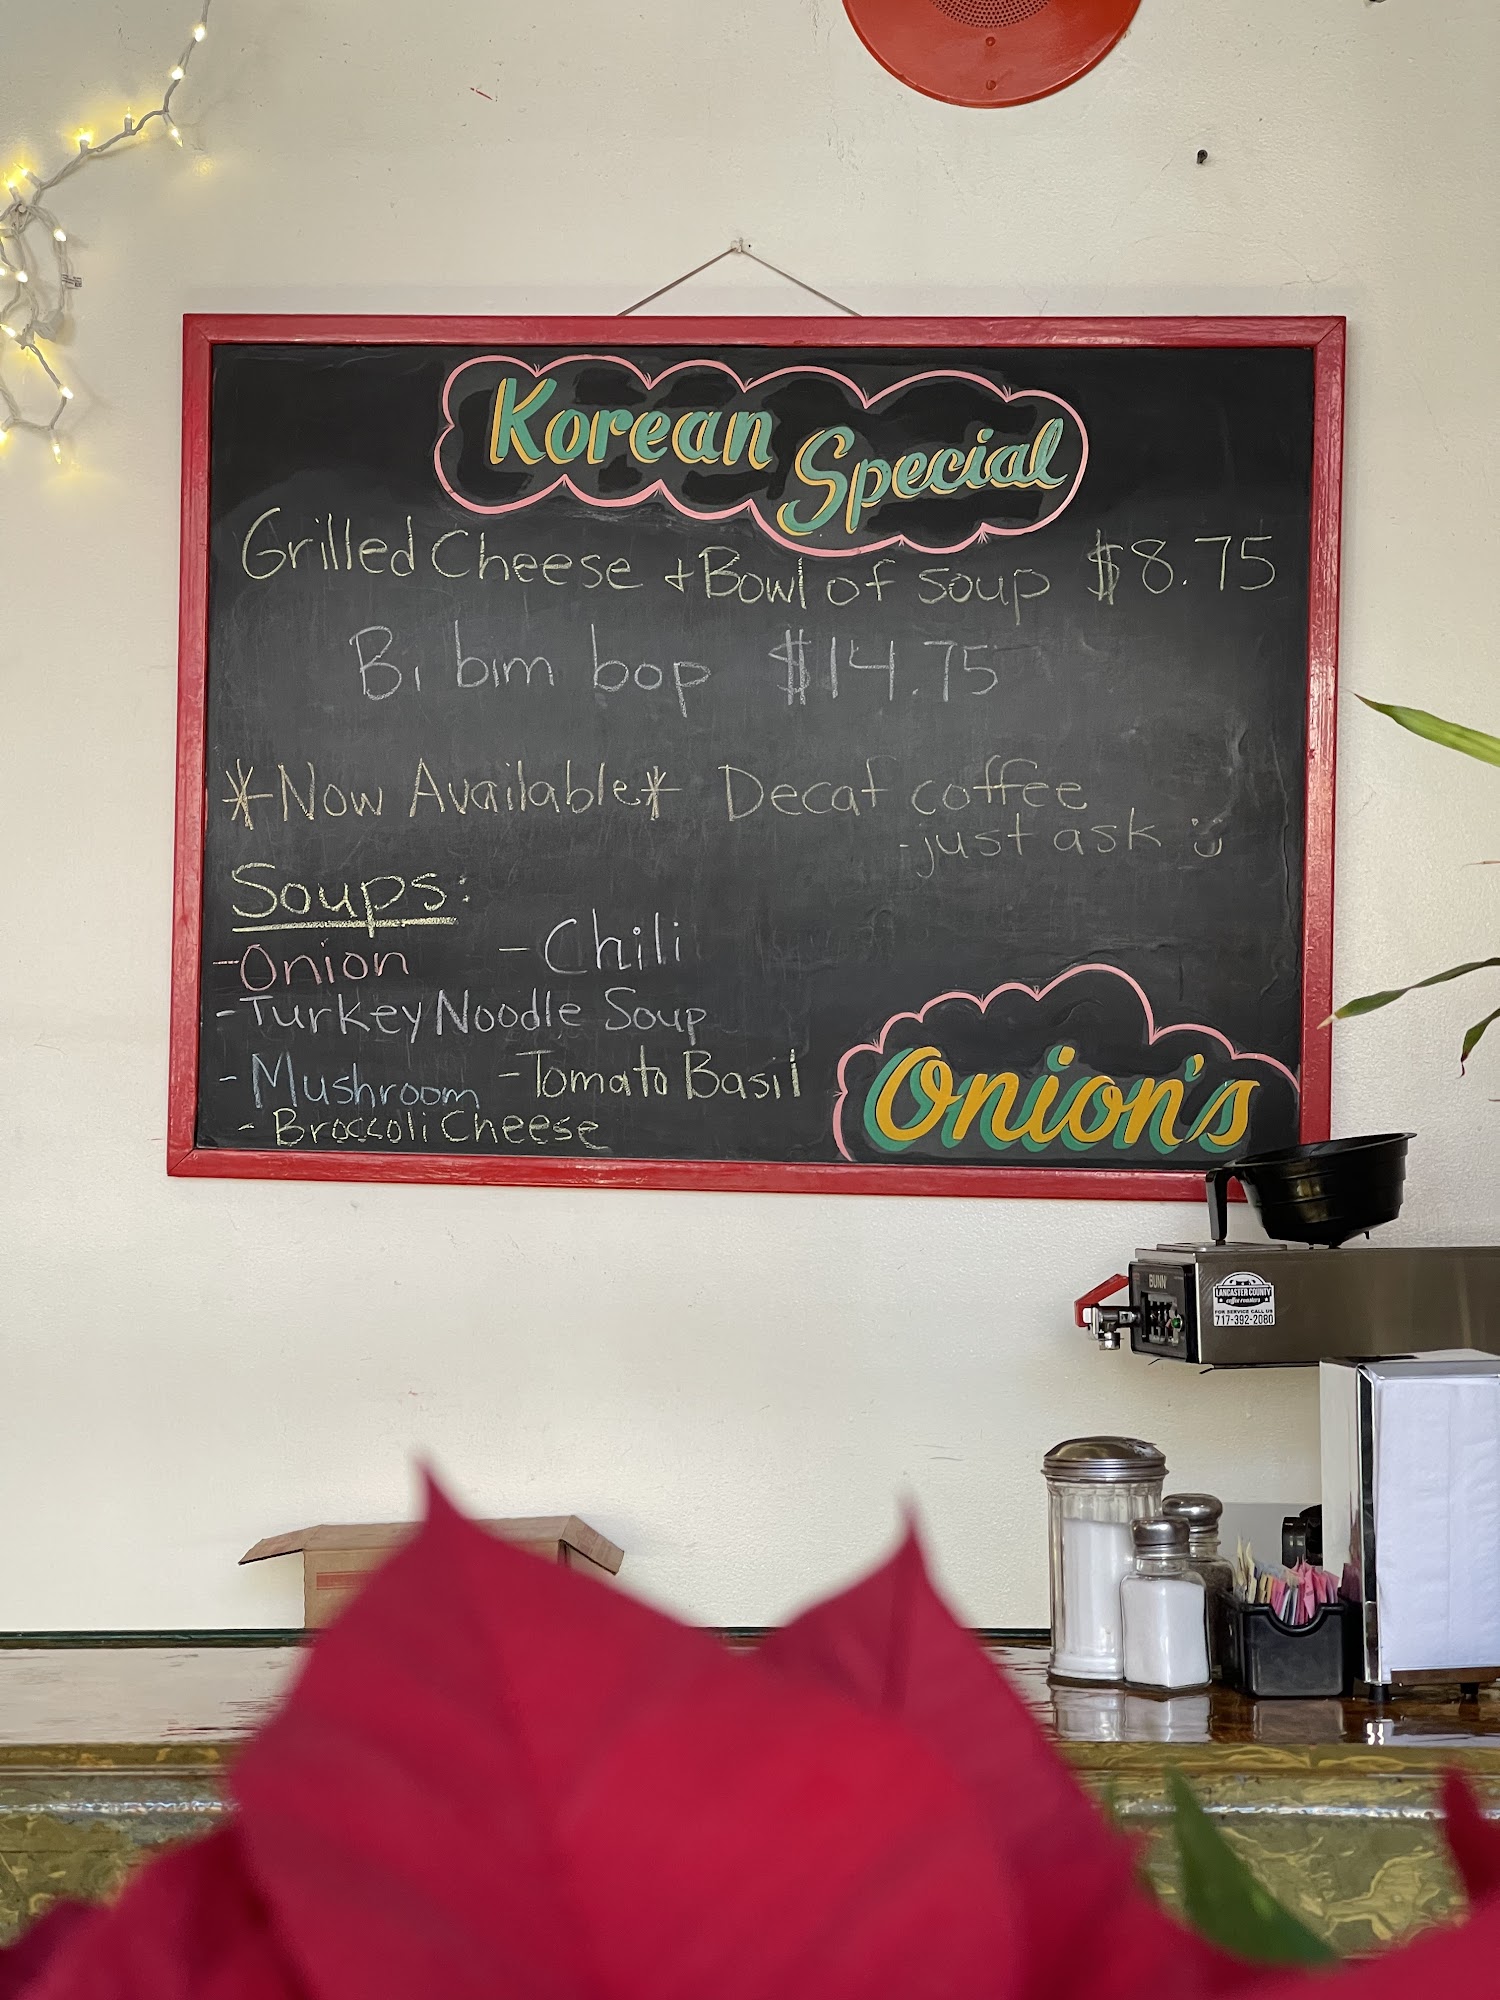 Korean Special
Grilled Cheese + Bowl of soup $8.75
Bi bim bop $14.75
*Now Available* Decaf coffee
-just ask :)
Soups:
-Onion -Chili
-Turkey Noodle Soup
-Mushroom -Tomato Basil
-Broccoli Cheese
Onion's
BUNN
LANCASTER COUNTY
coffee roasters
FOR SERVICE CALL US
717-392-2080